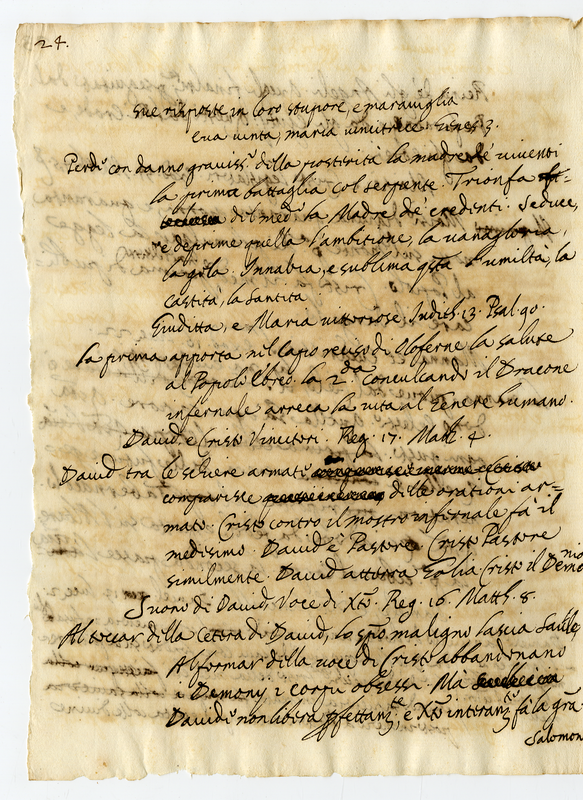 24.
sue risposte in loro stupore, e maraviglia
eva vinta, maria vincitrice Genes. 3.
Perdè con danno graviss.º della posterità la madre de' viventi
la prima battaglia col serpente. Trionfa
del med.º la Madre de' credenti. Seduce,
e deprime quella l'ambitione, la vanagloria,
la gola. Innalza, e sublima qsta l'umiltà, la
castità, la santità.
Giuditta, e Maria vittoriose. Judith. 13. Psal. 90.
La prima apporta nel capo reciso di Oloferne la salute
al Popolo Ebreo. la 2.da conculcando il Dracone
infernale arreca la vita al Genere humano.
David, e Cristo Vincitori. Reg. 17. Matt. 4.
David tra le schiere armato
comparisce delle orationi ar=
mato. Cristo contro il mostro infernale fà il
medesimo. David è Pastore Cristo Pastore
similmente. David atterra Golia Cristo il Demonio
Suono di David, Voce di Xto. Reg. 16. Matth. 8.
Al toccar della Cetera di David, lo spto maligno lascia Saule,
Al formar della voce di Cristo abbandonano
i Demonij i corpi obsessi. Ma
David non libera pfettamte, e Xto interamte fà la gra
Salomon